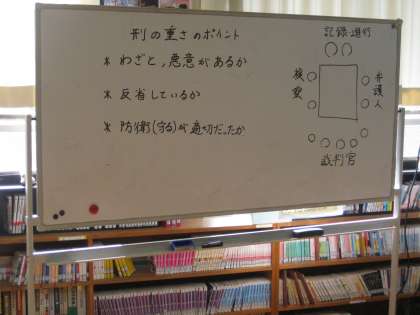 刑の重さのポイント
* わざと,悪意があるか
* 反省しているか
* 防衛(守る)が適切だったか
記録・進行
検察
弁護人
裁判官